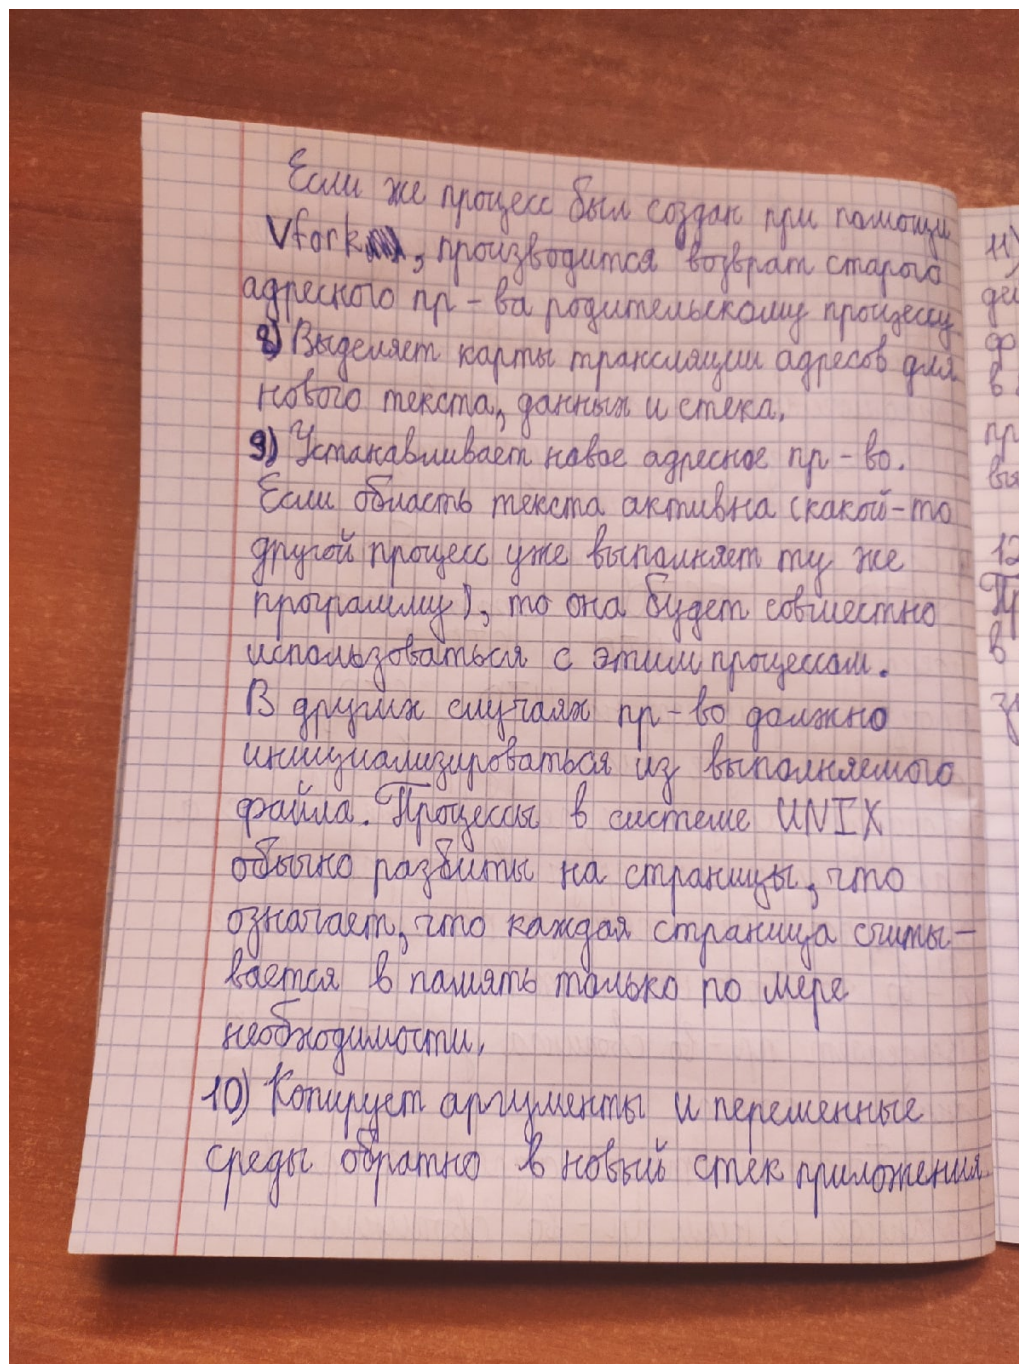 Если же процесс был создан при помощи
Vfork, производится возврат старого
адресного пр-ва родительскому процессу
8) Выделяет карты трансляции адресов для
нового текста, данных и стека.
9) Устанавливает новое адресное пр-во.
Если область текста активна (какой-то
другой процесс уже выполняет ту же
программу), то она будет совместно
использоваться с этим процессом.
В других случаях пр-во должно
инициализироваться из выполняемого
файла. Процессы в системе UNIX
обычно разбиты на страницы, что
означает, что каждая страница считы-
вается в память только по мере
необходимости.
10) Копирует аргументы и переменные
среды обратно в новый стек приложения.
11)
12
в